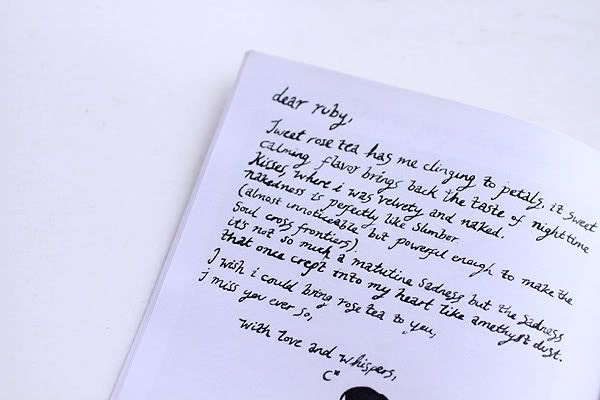 dear ruby,
Sweet rose tea has me clinging to petals. it sweet
calming flavor brings back the taste of nighttime
Kisses, where i was velvety and naked.
nakedness is perfectly like slumber
(almost innoticeable but powerful enough to make the
Soul cross frontiers).
it's not so much a matutine sadness but the sadness
that once crept into my heart like amethyst dust.
I wish i could bring rose tea to you,
i miss you ever so,
with love and whispers,
C*